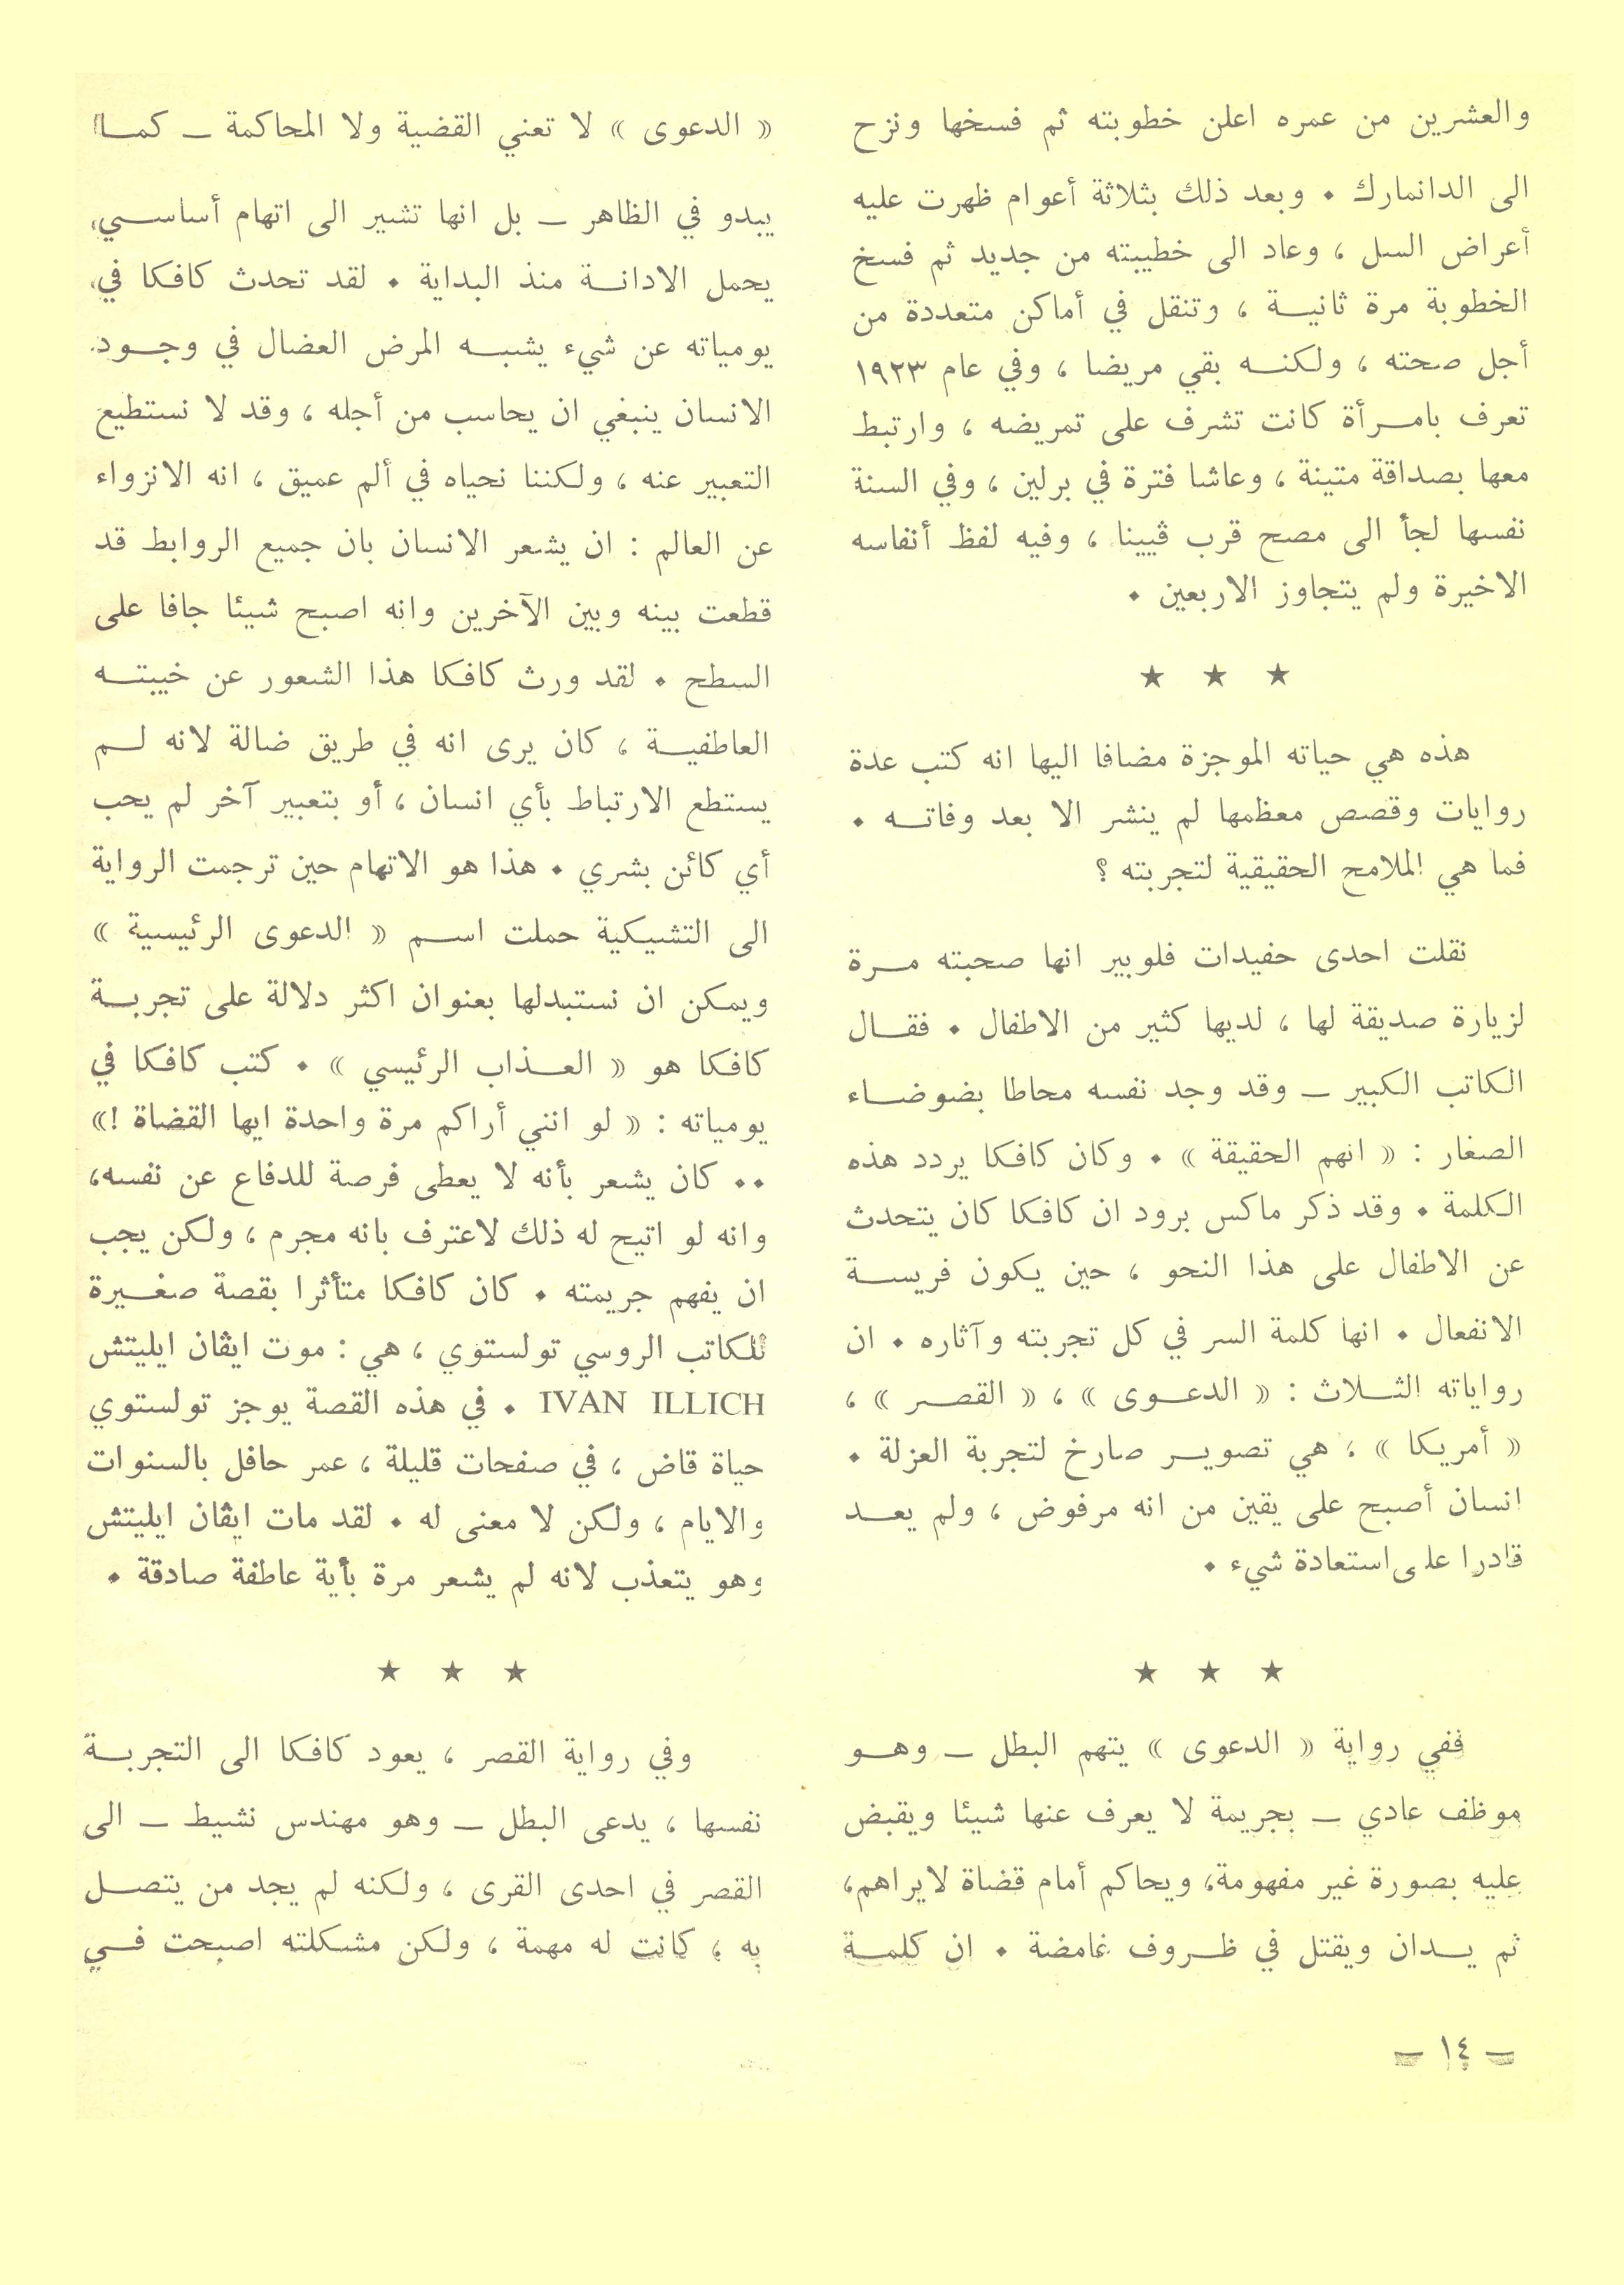 والعشرين من عمره اعلن خطوبته ثم فسخها ونزح
الى الدانمارك ٠ وبعد ذلك بثلاثة أعوام ظهرت عليه
أعراض السل ، وعاد الى خطيبته من جديد ثم فسخ
الخطوبة مرة ثانيـة ، وتنقل في أماكن متعددة من
أجل صحته ، ولكنـه بقي مريضا ، وفي عام ١٩٢٣
تعرف بامـرأة كانت تشرف على تمريضه ، وارتبط
معها بصداقة متينة ، وعاشا فترة في برلين ، وفي السنة
نفسها لجأ الى مصح قرب ڤيينا ، وفيه لفظ أنفاسه
الاخيرة ولم يتجاوز الاربعين ٠
★ ★ ★
هذه هي حياته الموجزة مضافا اليها انه كتب عدة
روايات وقصص معظمها لم ينشر الا بعد وفاتـه ٠
فما هي الملامح الحقيقية لتجربته ؟
نقلت احدى حفيدات فلوبير انها صحبته مـرة
لزيارة صديقة لها ، لديها كثير من الاطفال ٠ فقـال
الكاتب الكبير ــ وقد وجد نفسه محاطا بضوضـاء
الصغار : « انهم الحقيقة » ٠ وكان كافكا يردد هذه
الكلمة ٠ وقد ذكر ماكس برود ان كافكا كان يتحدث
عن الاطفال على هذا النحو ، حين يكون فريسـة
الانفعال ٠ انها كلمة السر في كل تجربته وآثاره ٠ ان
رواياته الثـلاث : « الدعـوى » ، « القصـر » ،
« أمريكا » ، هي تصويـر صارخ لتجربة العزلة ٠
انسان أصبح على يقين من انه مرفوض ، ولم يعـد
قادرا على استعادة شيء ٠
★ ★ ★
ففي رواية « الدعوى » يتهم البطل ــ وهـو
موظف عادي ــ بجريمة لا يعرف عنها شيئا ويقبض
عليه بصورة غير مفهومة، ويحاكم أمام قضاة لايراهم،
ثم يـدان ويقتل في ظـروف غامضة ٠ ان كلمـة
« الدعوى » لا تعني القضية ولا المحاكمة ــ كمـا
يبدو في الظاهر ــ بل انها تشير الى اتهام أساسـي،
يحمل الادانـة منذ البداية ٠ لقد تحدث كافكا في
يومياته عن شيء يشبـه المرض العضال في وجـود
الانسان ينبغي ان يحاسب من أجله ، وقد لا نستطيع
التعبير عنه ، ولكننا نحياه في ألم عميق ، انه الانزواء
عن العالم : ان يشعر الانسان بان جميع الروابط قد
قطعت بينه وبين الآخرين وانه اصبح شيئا جافا على
السطح ٠ لقد ورث كافكا هذا الشعور عن خيبتـه
العاطفيـة ، كان يرى انه في طريق ضالة لانه لـم
يستطع الارتباط بأي انسان ، أو بتعبير آخر لم يحب
أي كائن بشري ٠ هذا هو الاتهام حين ترجمت الرواية
الى التشيكية حملت اسـم « الدعوى الرئيسية »
ويمكن ان نستبدلها بعنوان اكثر دلالة على تجربـة
كافكا هو « العـذاب الرئيسي » ٠ كتب كافكا في
يومياته : « لو انني أراكم مرة واحدة ايها القضاة !»
٠٠ كان يشعر بأنه لا يعطى فرصة للدفاع عن نفسه،
وانه لو اتيح له ذلك لاعترف بانه مجرم ، ولكن يجب
ان يفهم جريمته ٠ كان كافكا متأثرا بقصة صغـيرة
للكاتب الروسي تولستوي ، هي : موت ايڤان ايليتش
IVAN ILLICH ٠ في هذه القصة يوجز تولستوي
حياة قاض ، في صفحات قليلة ، عمر حافل بالسنوات
والايام ، ولكن لا معنى له ٠ لقد مات ايڤان ايليتش
وهو يتعذب لانه لم يشعر مرة بأية عاطفة صادقة ٠
★ ★ ★
وفي رواية القصر ، يعود كافكا الى التجربـة
نفسها ، يدعى البطل ــ وهو مهندس نشيط ــ الى
القصر في احدى القرى ، ولكنه لم يجد من يتصـل
به ، كانت له مهمة ، ولكن مشكلته اصبحت فـي
— ١٤ —